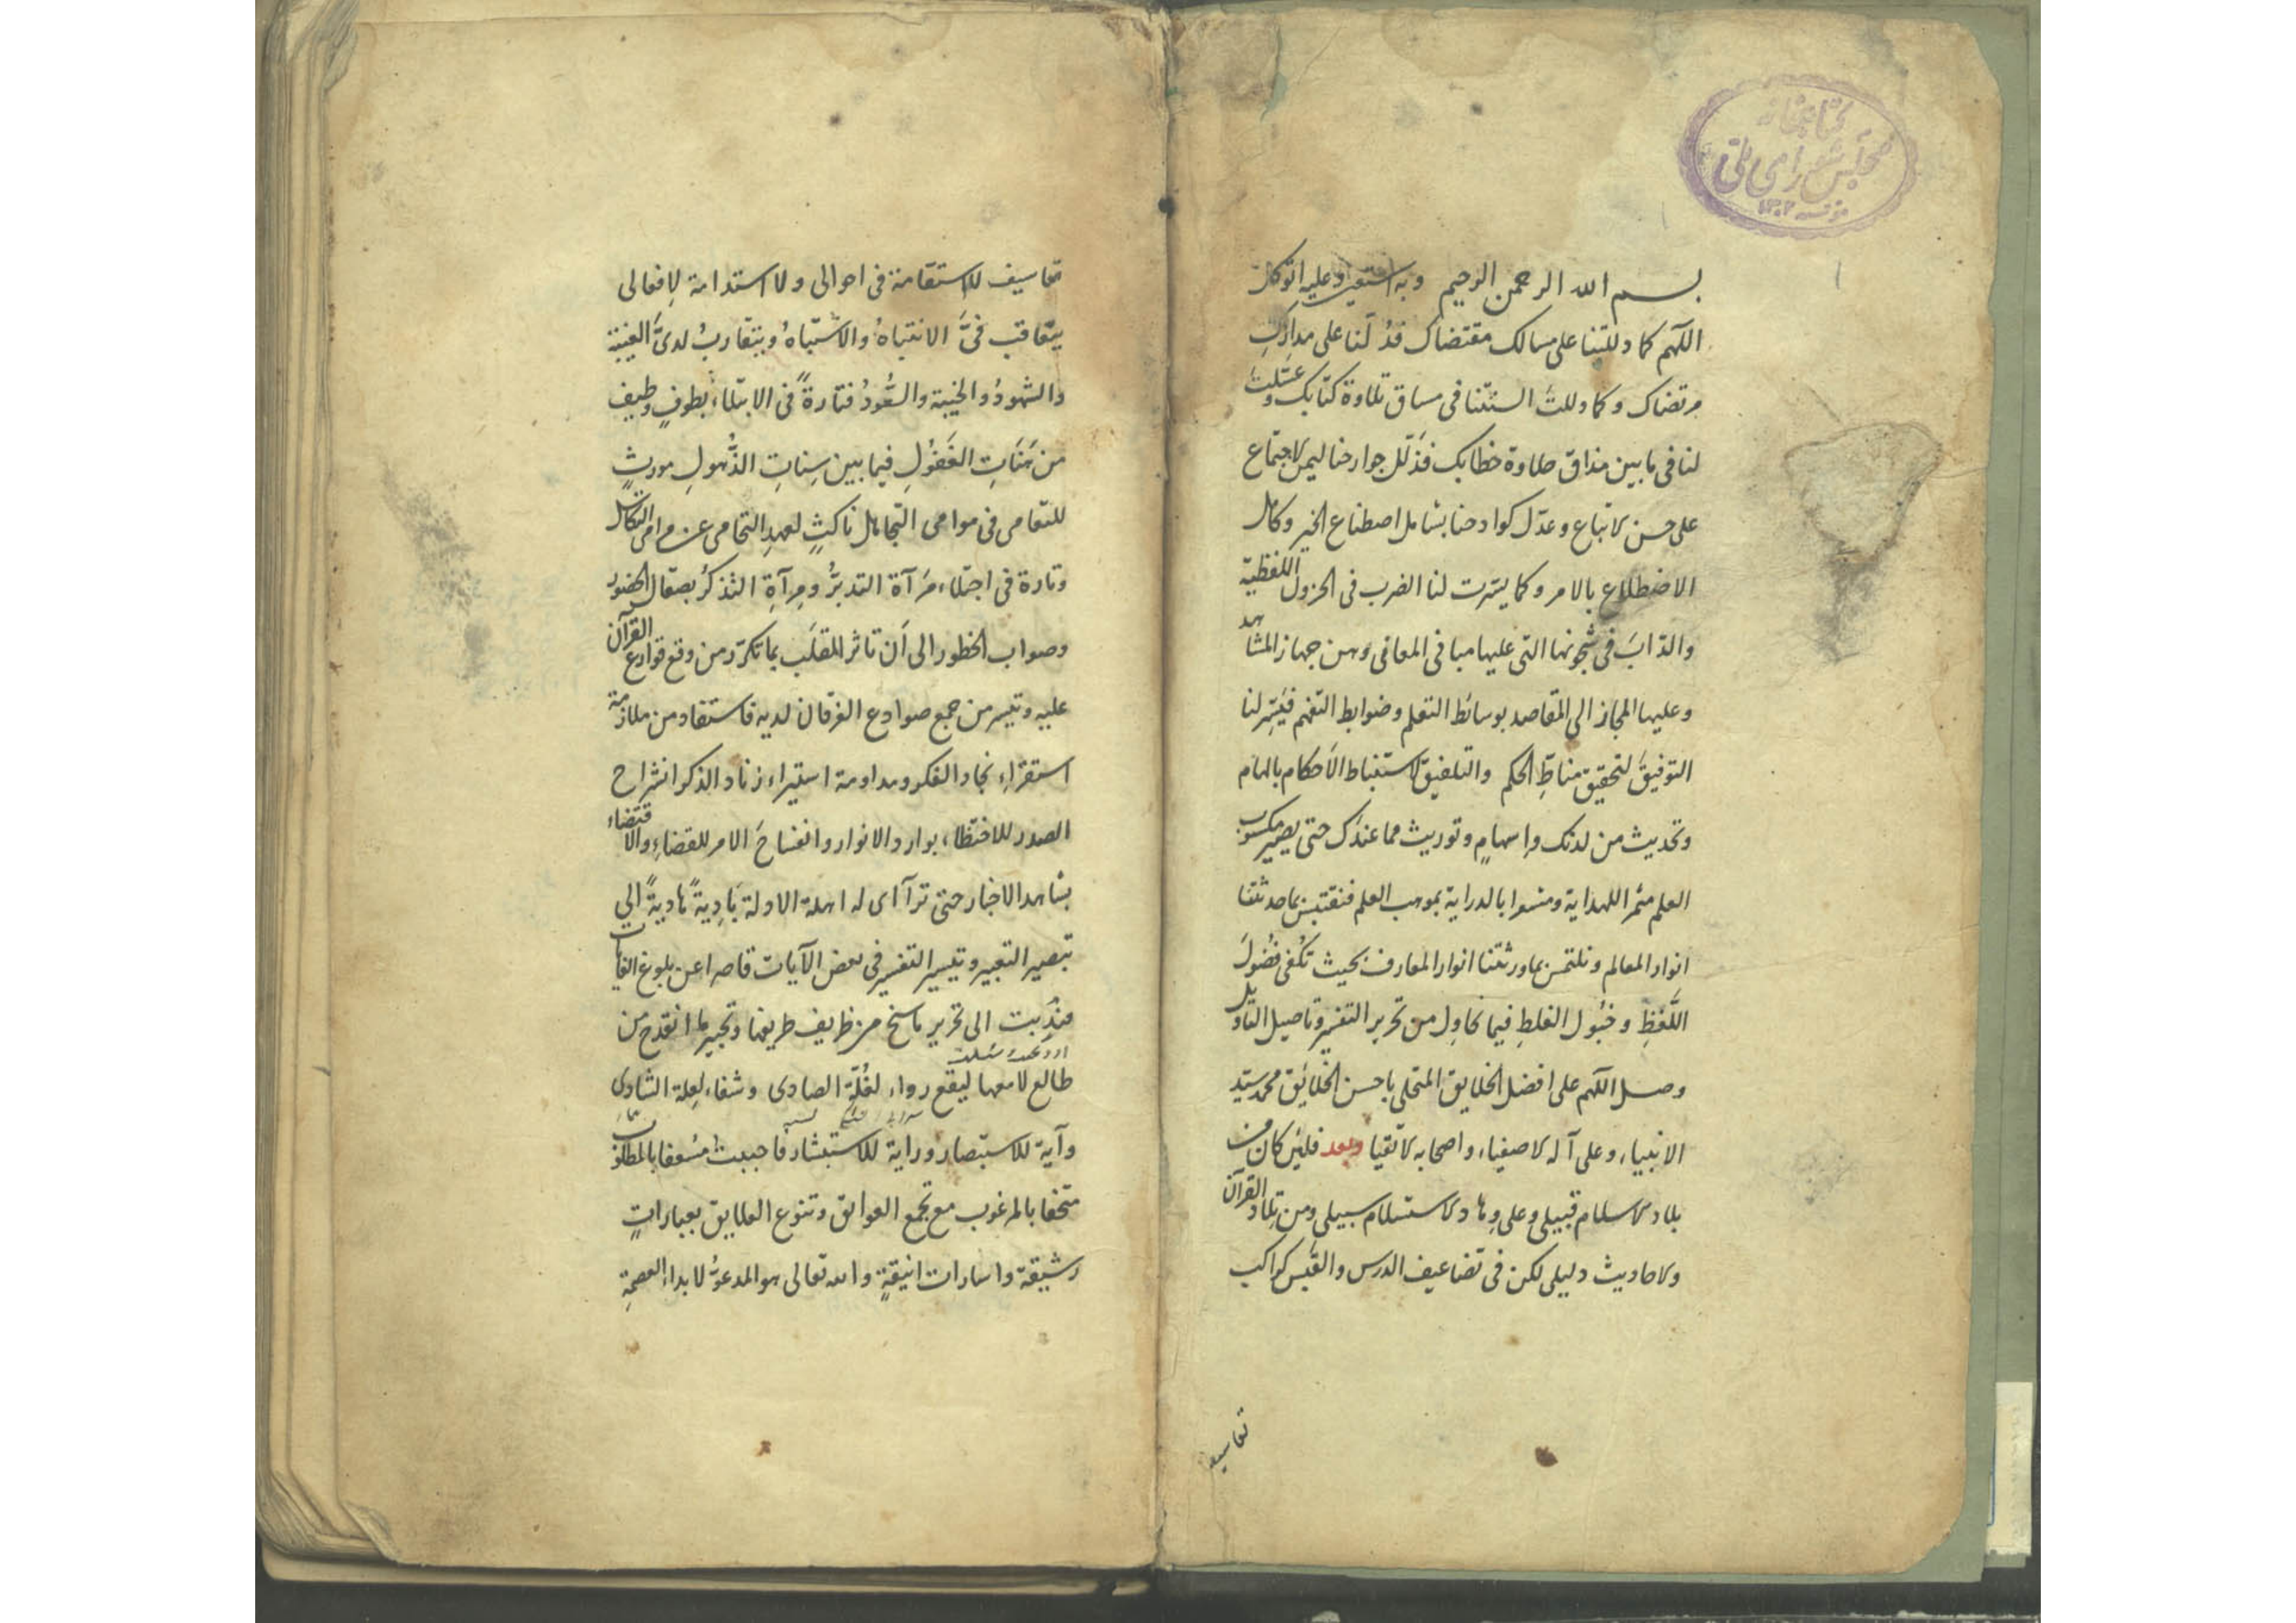 كتابخانه
مجلس شورای ملی
۱۳۰۲
بسم الله الرحمن الرحيم وبه استعين وعليه اتوكل
اللهم كما دللتنا على مسالك مقتضاك فدُلّنا على مدارك
مرتضاك وكما ذللت السنتنا فى مساق تلاوة كتابك وعسّلت
لنا فى ما بين مذاق حلاوة خطابك فذلّل جوارحنا ليمن لاجتماع
على حسن لاتباع وعدّل كوادحنا بشامل اصطناع الخير وكامل
الاضطلاع بالامر وكما يسّرت لنا الضرب فى الحزول اللفظية
والدّاب فى شجونها التى عليها مبا فى المعافى وهن جهاز المشاهد
وعليها المجاز الى المقاصد بوسائط التعلم وضوابط التفهم فيسّر لنا
التوفيق لتحقيق مناطِ الحكم والتلفيق لاستنباط الاحكام بالهام
وتحديث من لدنك وإسهامٍ وتوريث مما عندك حتى يصير مكسوب
العلم مثمر اللهداية ومشعرا بالدراية بموهب العلم فنقتبس بما حدثتنا
انوار المعالم ونلتمس بما ورثتنا انوار المعارف بحيث تكفى فضولَ
اللَّفظِ وخبول الغلطِ فيما نحاول من تحرير التفسير وتاصيل التاويل
وصل اللهم على افضل الخلايق المتحلى باحسن الخلائق محمد سيّد
الانبياء وعلى آله لاصفياء واصحابه لاتقيا وبعد فلئن كان من
بلاد لاسلام قبيلى وعلى وهاد لاستسلام سبيلى ومن تلاد القرآن
ولاحاديث دليلى لكن فى تضاعيف الدرس والقبس كواكب
تعاسيف
تعاسيف للاستقامة فى احوالى ولا استدامة لِافعالى
يتعاقب فىَّ الانتباهُ والاشتباهُ ويتقاربُ لدىَّ الغيبة
والشهودُ والخيبة والسُّعودُ فتارةً فى الابتلاء بطوفٍ وطيف
من هَنَاتِ الغَفُولِ فيما بين سِناتِ الذُّهولِ مورثٍ
للتعامى فى موامى التجاهل ناكثٍ لعهدِ التحامى عن مرامى التكاسل
وتارة فى اجتلاء مَرآة التدبّر ومِرآةِ التذكرُ بصقال الحضور
وصواب الخطور الى اَن تاثر القلب بما تكرّر من وقع قوارع القرآن
عليه وتيسر من جمع صوادع الفرقان لديه فاستفاد من ملازمة
استقراءِ نجاد الفكر ومداومة استيراء زناد الذكر انشراح
الصدر للاحتظاء بوارد الانوار وانفساحَ الامر للقضاءِ والاقتضاء
بشاهد الاخبار حتى ترآاى له اهلة الادلة بَادِيةً هاديةً الى
تبصير التعبير وتيسير التفسير فى بعض الآيات قاصرا عن بلوغ الغايات
فنُدِبت الى تحرير ما سنح من ظريف طريفها وتحبير ما انقدح من
طالع لامعها ليقع رواء لغُلّة الصادى وشفاء لِعلة الشادى
وآية للاستبصار وراية للاستبشار فاجبت مُسعفا بالمطلوب
متحفا بالمرغوب مع تجمع العوائق وتنوع العلايق بعباراتٍ
رشيقة واشارات انيقةٍ والله تعالى هو المدعوّ لابداء العصمةِ